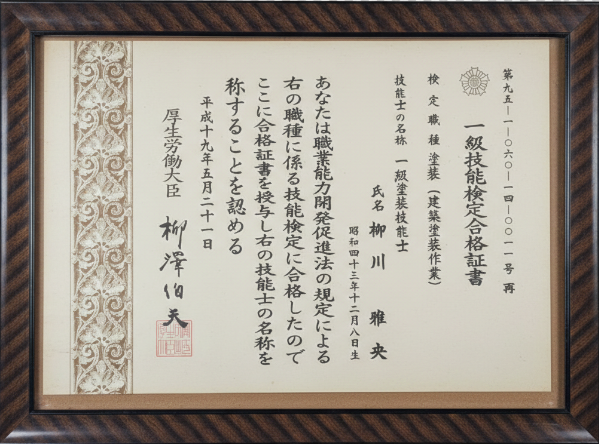 第九五―一―〇六〇―一四―〇〇一一号 再
一級技能検定合格証書
検定職種 塗装（建築塗装作業）
技能士の名称 一級塗装技能士
氏名 柳川 雅央
昭和四十三年十二月八日生
あなたは職業能力開発促進法の規定による
右の職種に係る技能検定に合格したので
ここに合格証書を授与し右の技能士の名称を
称することを認める
平成十九年五月二十一日
厚生労働大臣 柳澤伯夫